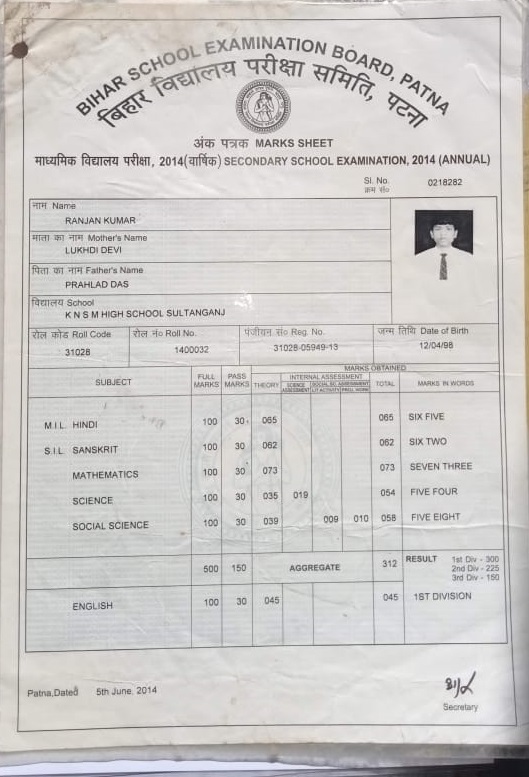 BIHAR SCHOOL EXAMINATION BOARD, PATNA
बिहार विद्यालय परीक्षा समिति, पटना
अंक पत्रक MARKS SHEET
माध्यमिक विद्यालय परीक्षा, 2014(वार्षिक) SECONDARY SCHOOL EXAMINATION, 2014 (ANNUAL)
Sl. No. 0218282
क्रम सं०
नाम Name
RANJAN KUMAR
माता का नाम Mother's Name
LUKHDI DEVI
पिता का नाम Father's Name
PRAHLAD DAS
विद्यालय School
K N S M HIGH SCHOOL SULTANGANJ
रोल कोड Roll Code रोल नं० Roll No. पंजीयन सं० Reg. No. जन्म तिथि Date of Birth
31028 1400032 31028-05949-13 12/04/98
MARKS OBTAINED
SUBJECT FULL MARKS PASS MARKS THEORY INTERNAL ASSESSMENT TOTAL MARKS IN WORDS
M.I.L. HINDI 100 30 065 065 SIX FIVE
S.I.L. SANSKRIT 100 30 062 062 SIX TWO
MATHEMATICS 100 30 073 073 SEVEN THREE
SCIENCE 100 30 035 019 054 FIVE FOUR
SOCIAL SCIENCE 100 30 039 009 010 058 FIVE EIGHT
500 150 AGGREGATE 312 RESULT 1st Div - 300
2nd Div - 225
3rd Div - 150
ENGLISH 100 30 045 045 1ST DIVISION
Patna,Dated 5th June, 2014
Secretary